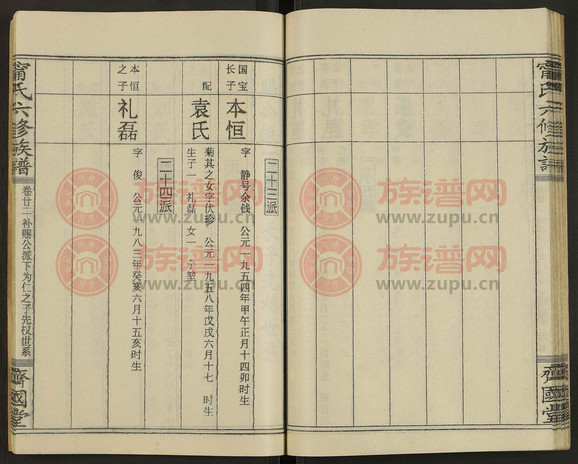 甯氏六修族譜
齊國堂
二十三派
国宝
长子
本恒
字 静号余钱 公元一九五四年甲午正月十四卯时生
配
袁氏
菊其之女字伏珍 公元一九五八年戊戌六月十七 时生
生子一 礼磊 女一
二十四派
本恒
之子
礼磊
字 俊 公元一九八三年癸亥六月十五亥时生
甯氏六修族譜
卷廿二 补赐公派下为仁之子先权世系
齊國堂
族谱网
www.zupu.cn
族谱网
www.zupu.cn
族谱网
www.zupu.cn
族谱网
www.zupu.cn